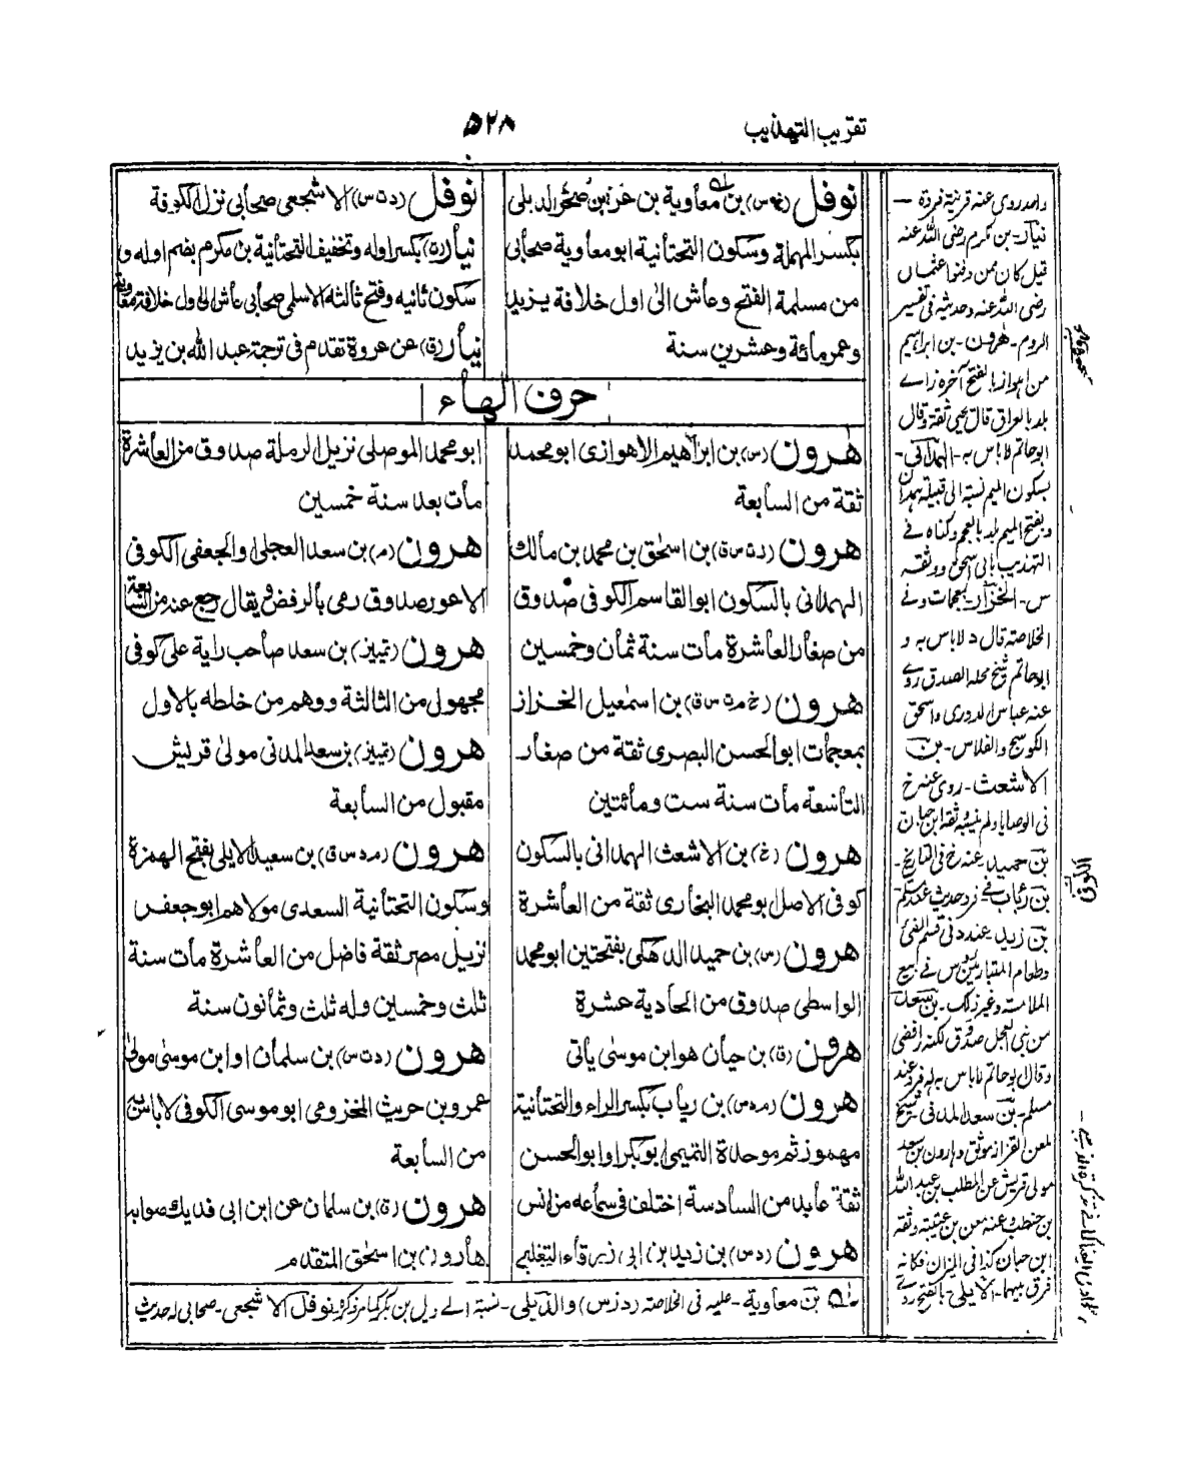 تقريب التهذيب
۵۲۸
نوفل (خ م س) بن معاوية بن عروة بن صخر الديلى
بكسر المهملة وسكون التحتانية ابو معاوية صحابى
من مسلمة الفتح وعاش الى اول خلافة يزيد
وعمر مائة وعشرين سنة
نوفل (د ت س) الاشجعى صحابى نزل الكوفة
نيار (ت) بكسر اوله وتخفيف التحتانية بن مكرم بضم اوله و
سكون ثانيه وفتح ثالثه الاسلمى صحابى عاش الى اول خلافة معاوية
نيار (ق) عن عروة تقدم فى ترجمة عبد الله بن يزيد
حرف الهاء
هرون (س) بن ابراهيم الاهوازى ابو محمد
ثقة من السابعة
هرون (ر ت س ق) بن اسحٰق بن محمد بن مالك
الهمدانى بالسكون ابو القاسم الكوفى صدوق
من صغار العاشرة مات سنة ثمان وخمسين
هرون (خ م ت س ق) بن اسمٰعيل الخزاز
بمعجمات ابو الحسن البصرى ثقة من صغار
التاسعة مات سنة ست ومائتين
هرون (خ) بن الاشعث الهمدانى بالسكون
كوفى الاصل ابو محمد البخارى ثقة من العاشرة
هرون (س) بن حميد الدهكى بفتحتين ابو محمد
الواسطى صدوق من الحادية عشرة
هرون (ق) بن حيان هو ابن موسى يأتى
هرون (م د س) بن رياب بكسر الراء والتحتانية
مهموز ثم موحدة التميمى ابو بكر او ابو الحسن
ثقة عابد من السادسة اختلف فى سماعه من انس
هرون (د س) بن زيد بن ابى زرقاء التغلبى
ابو محمد الموصلى نزيل الرملة صدوق من العاشرة
مات بعد سنة خمسين
هرون (م) بن سعد العجلى او الجعفى الكوفى
الاعور صدوق رمى بالرفض ويقال رجع عنه من السابعة
هرون (تمييز) بن سعد صاحب راية على كوفى
مجهول من الثالثة ووهم من خلطه بالاول
هرون (تمييز) بن سعد المدنى مولىٰ قريش
مقبول من السابعة
هرون (م د س ق) بن سعيد الايلى بفتح الهمزة
وسكون التحتانية السعدى مولاهم ابو جعفر
نزيل مصر ثقة فاضل من العاشرة مات سنة
ثلث وخمسين وله ثلث وثمانون سنة
هرون (د ت س) بن سلمان او ابن موسىٰ مولىٰ
عمرو بن حريث المخزومى ابو موسى الكوفى لا بأس به
من السابعة
هرون (ق) بن سلمان عن ابن ابى فديك صوابه
هارون بن اسحٰق المتقدم
بن معاوية - عليه فى الخلاصة (ر ز س) والديلى - نسبة الى ديل بن بكر نوفل الاشجعى - صحابى له حديث
واحد روى عنه قرينه فروة -
نيار - بن مكرم رضى الله عنه
قيل كان ممن دفنوا عثمان
رضى الله عنه وحديثه فى تفسير
الروم - هرون - بن ابراهيم
من اهواز بالفتح آخره زاے
بلد بالعراق قال يحيى ثقة وقال
ابو حاتم لا باس به - الهمدانى -
بسكون الميم نسبة الى قبيلة همدان
وبفتح الميم بلد بالعجم وكناه فى
التهذيب بابى اسحق ووثقه
س - الخزاز - بمعجمات وفى
الخلاصة قال د لا باس به و
ابو حاتم شيخ محله الصدق روى
عنه عباس الدورى واسحق
الكوسج والفلاس - بن
الاشعث - روى عنه خ
فى الوصايا ولم ينسبه ثقة ابن حبان
بن حميد عنه خ فى التاريخ -
بن رياب - له فرد حديث عند مسلم
بن زيد عنه د فى قسم الفئ
وطعام المتباريين س فى بيع
الملامسة وغير ذلك - بن سعد
من بنى العجل صدوق لكنه رافضى
وقال ابو حاتم لا باس به له فرد عند
مسلم - بن سعد المدنى شيخ
لمعن القزاز موثق وهارون بن سعد
مولى قريش عن المطلب بن عبد الله
بن حنطب عنه معن بن عيسى وثقه
ابن حبان كذا فى الميزان فكانه
فرق بينهما - الايلى - بالفتح